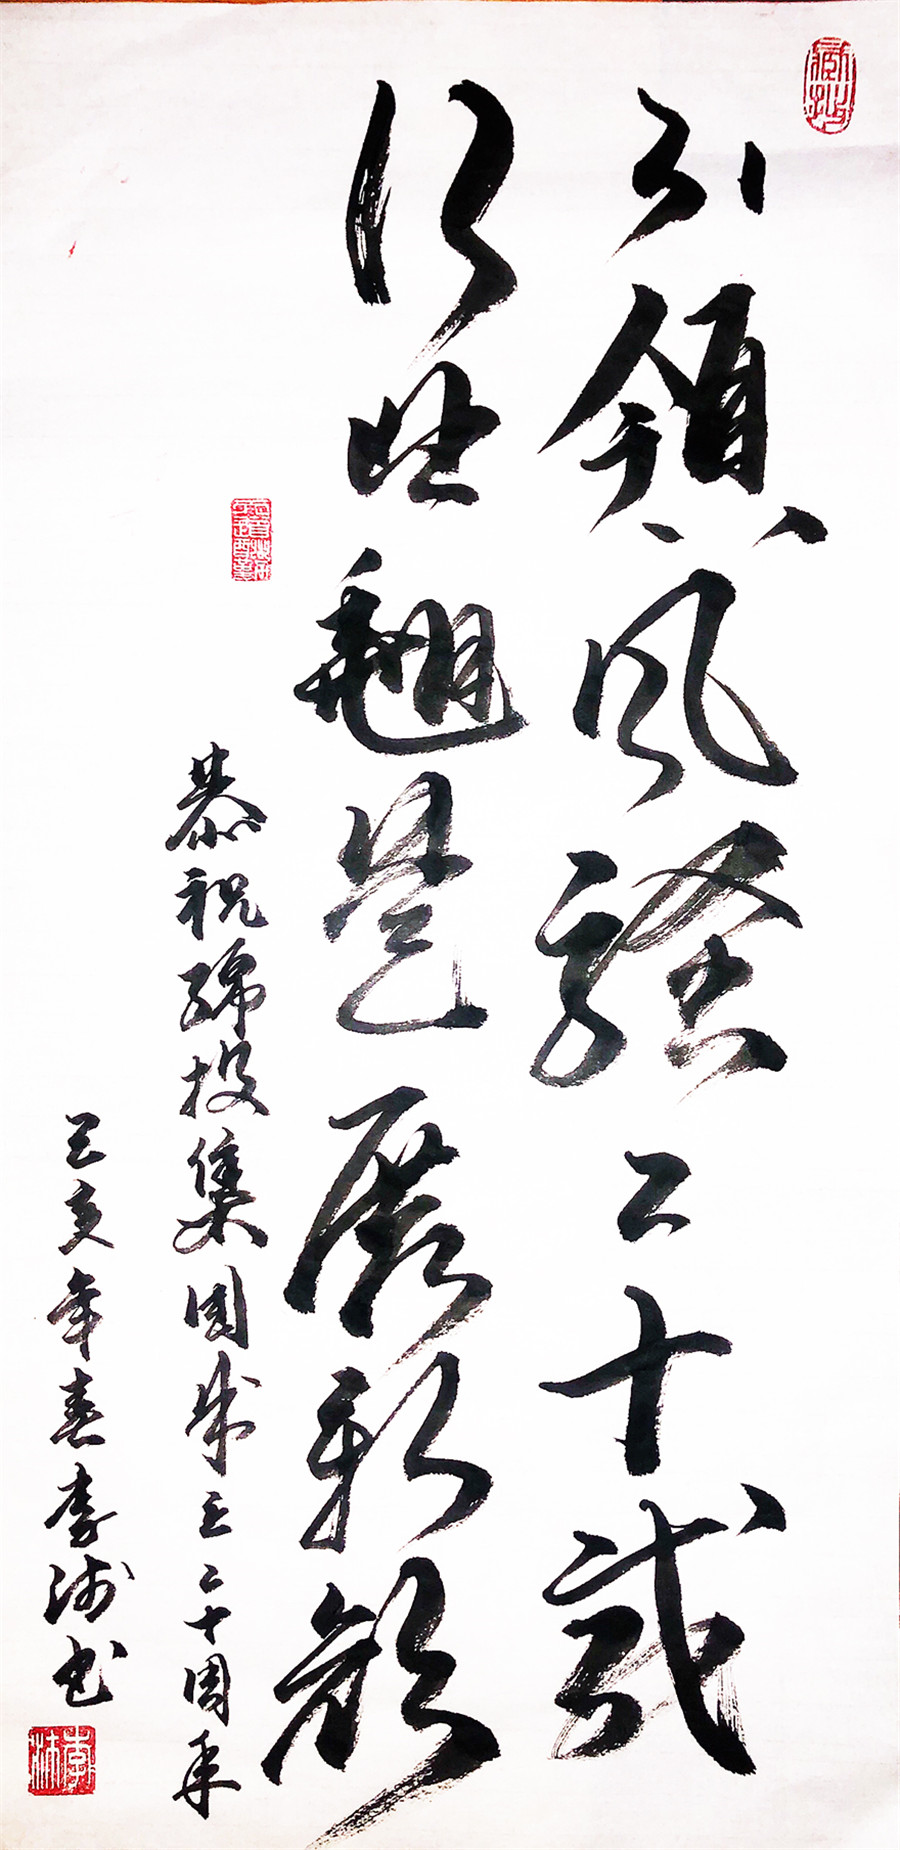 引領风骚二十载
行业翹楚展新颜
恭祝绵投集团成立二十周年
己亥年春李沛书